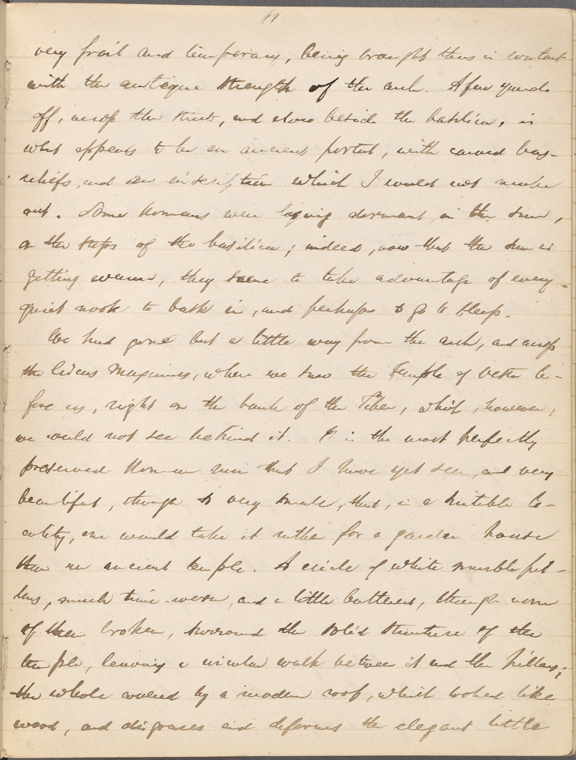 11
very frail and temporary, being brought thus in contact
with the antique strength of the arch. A few yards
off, across the street, and close beside the basilica, is
what appears to be an ancient portal, with carved bas-
reliefs, and an inscription which I could not make
out. Some Romans were lying dormant in the sun,
on the steps of the basilica; indeed, now that the sun is
getting warmer, they seem to take advantage of every
quiet nook to bask in, and perhaps to go to sleep.
We had gone but a little way from the arch, and across
the Circus Maximus, when we saw the Temple of Vesta be-
fore us, right on the bank of the Tiber, which, however,
we could not see behind it. It is the most perfectly
preserved Roman ruin that I have yet seen, and very
beautiful, though so very small, that, in a suitable lo-
cality, one would take it rather for a garden-house
than an ancient temple. A circle of white marble pil-
lars, much time-worn, and a little battered, though none
of them broken, surround the solid structure of the
temple, leaving a circular walk between it and the pillars;
the whole covered by a modern roof, which looked like
wood, and disgraces and deforms the elegant little